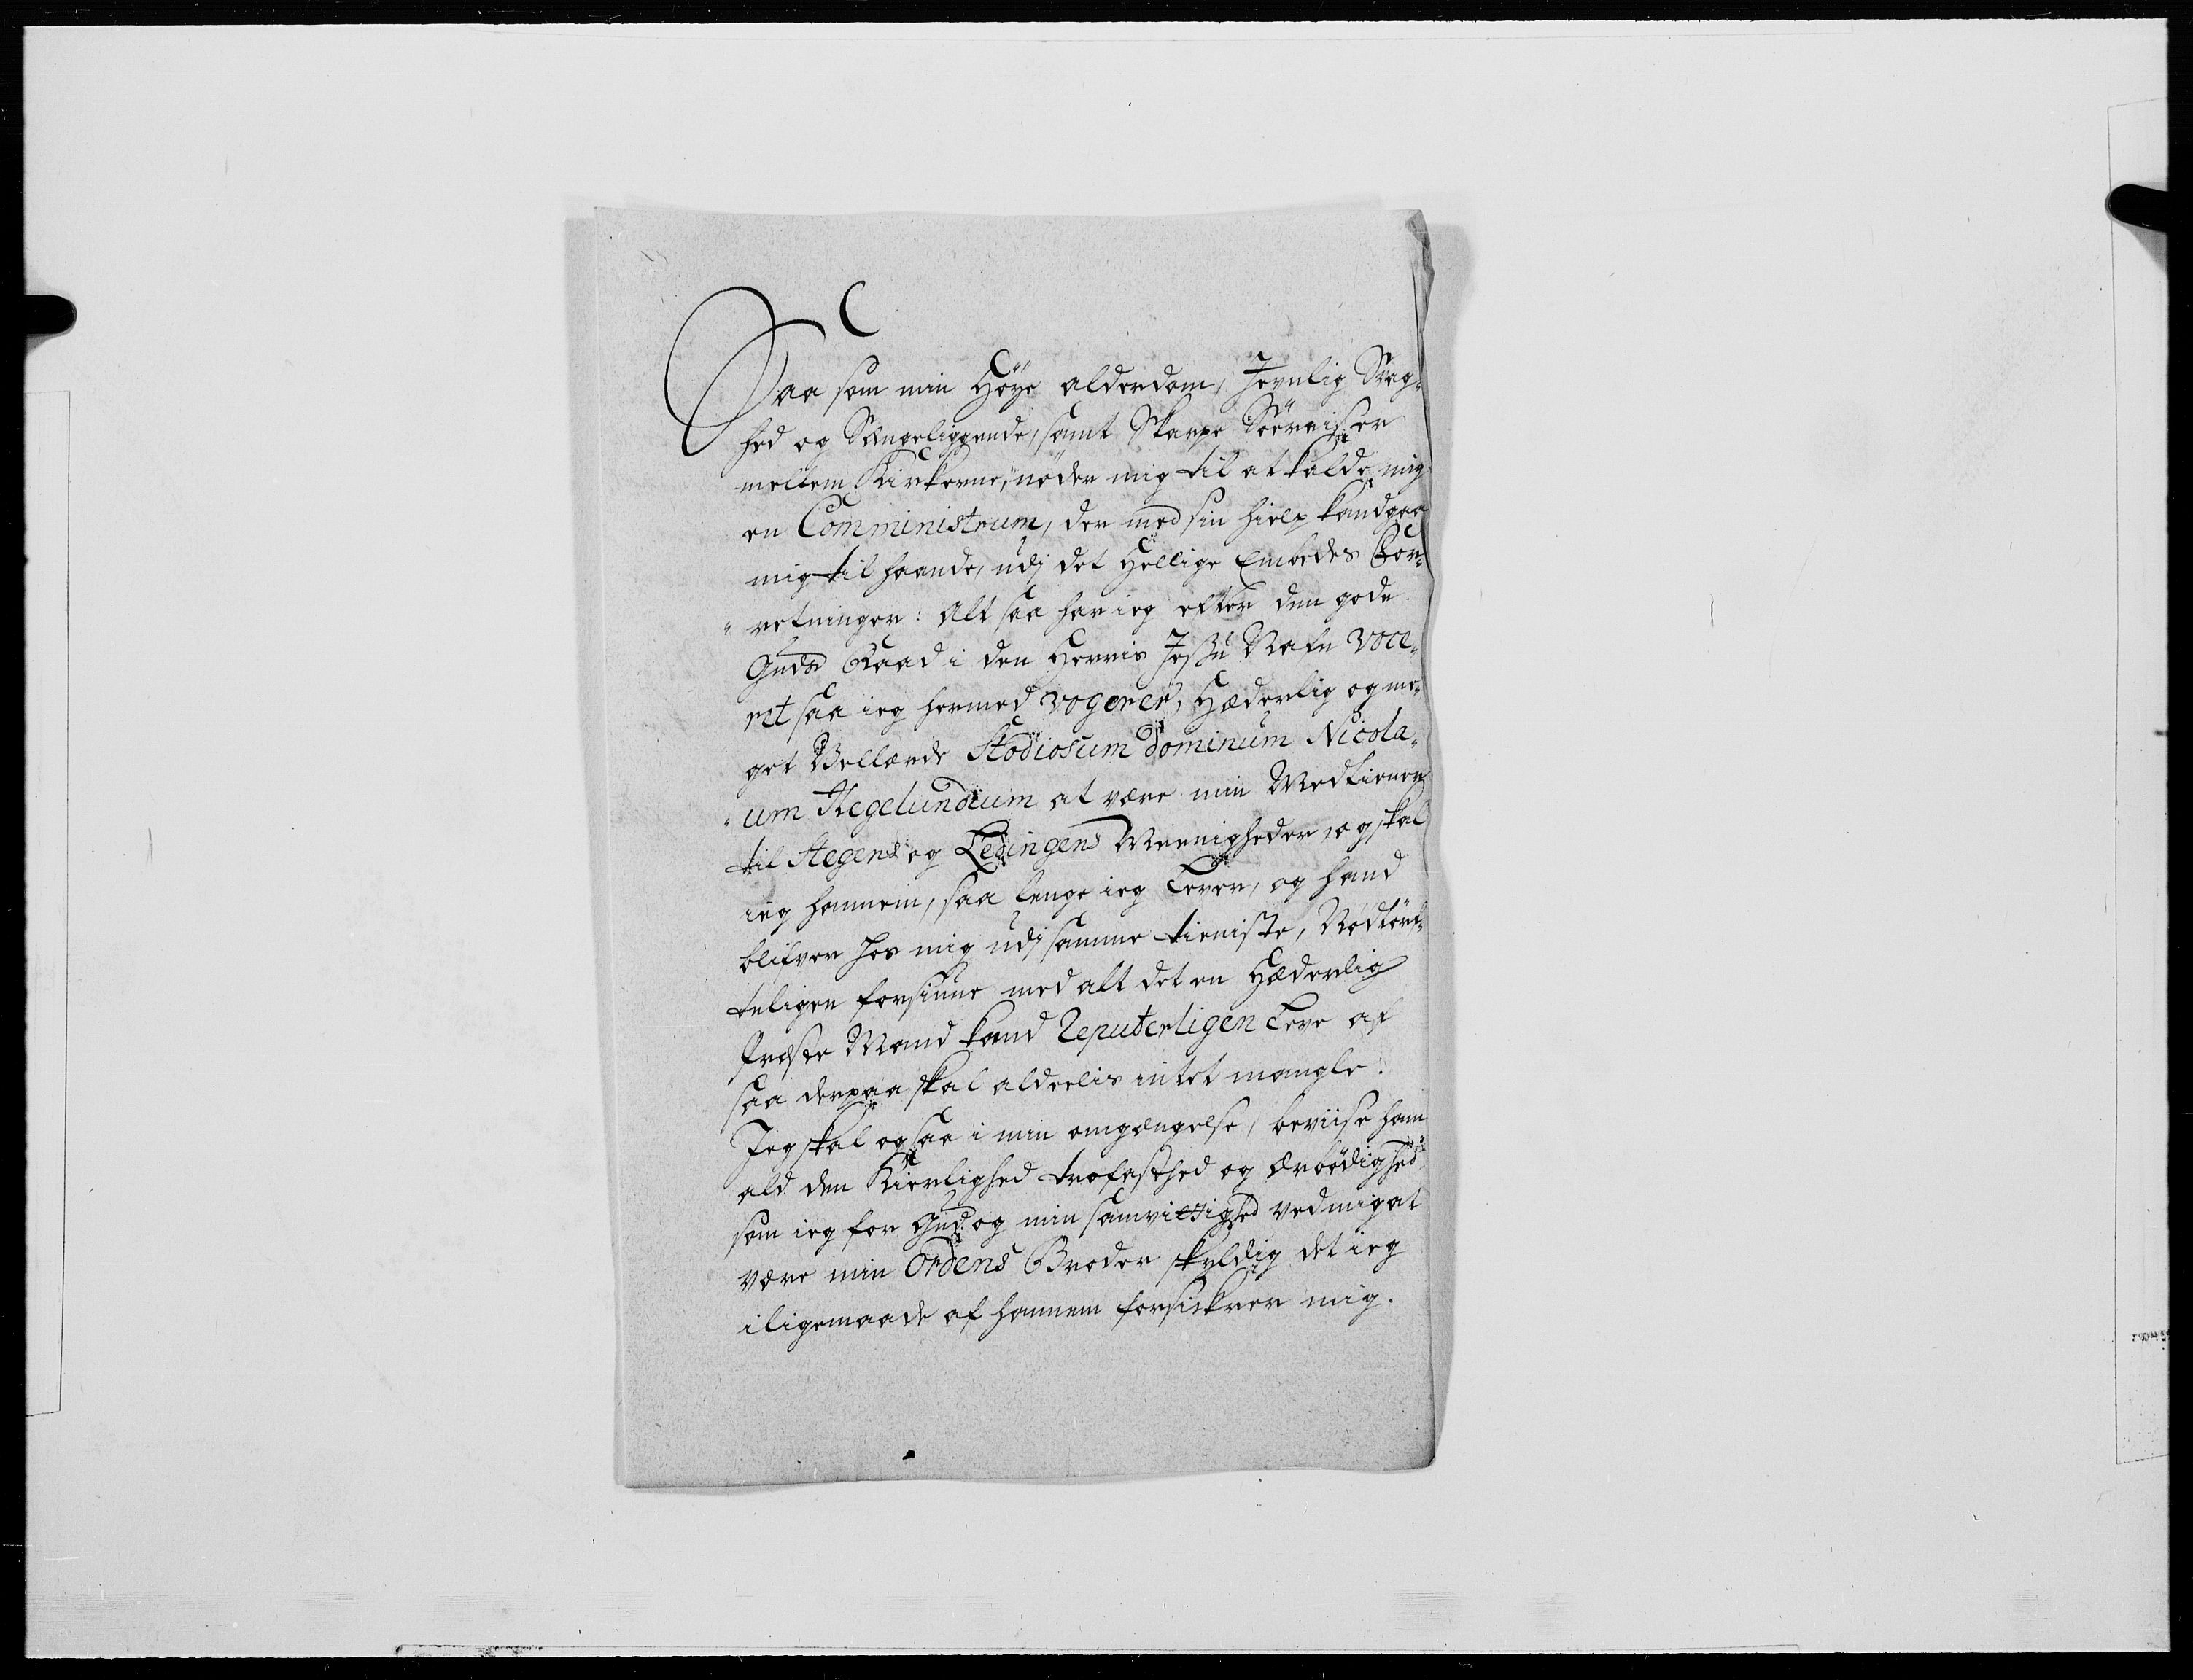 Saa som min Høye alderdom, Jevnlig Svag-
hed og Sængeliggende, samt Skarpe Søereisser
mellem Kirkerne, nøder mig til at kalde mig
en Comministrum, der med sin hielp kand gaa
mig til haande, udj det Hellige Embedes For-
" retninger: Alt saa har ieg efter den gode
Guds Raad i den Herris Jesu Nafn voce-
ret saa ieg hermed vocerer, Hæderlig og me-
get Vellærde Studiosum dominum Nicola-
" um Hegelundium at være min Medtiener
til Stegens og Ledingens Meenigheder, og skal
ieg hannem, saa lenge ieg Lever, og hand
blifver hos mig udj samme tieniste, Nødtørf-
teligen forsiune med alt det en Hæderlig
Præste Mand kand Reputerligen Leve af
saa derpaa skal alderlis intet mangle.
Jeg skal og saa i min omgængelse, beviise ham
ald den Kierlighed trofasthed og Ærbødighed
som ieg for Gud og min samvittighed ved mig at
være min Ordens Broder skyldig det ieg
iligemaade af hannem forsickrer mig.